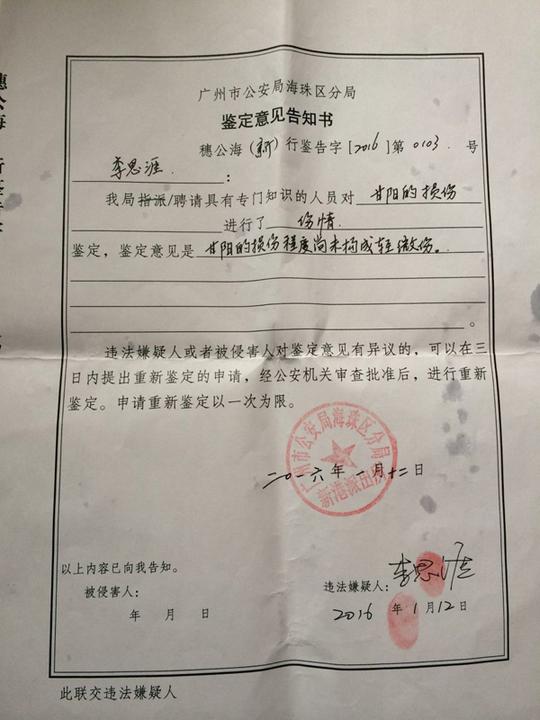 广州市公安局海珠区分局
鉴定意见告知书
穗公海(新)行鉴告字[2016]第0103号
李思涯:
我局指派/聘请具有专门知识的人员对甘阳的损伤
进行了伤情
鉴定,鉴定意见是甘阳的损伤程度尚未构成轻微伤。
。
违法嫌疑人或者被侵害人对鉴定意见有异议的,可以在三
日内提出重新鉴定的申请,经公安机关审查批准后,进行重新
鉴定。申请重新鉴定以一次为限。
广州市公安局海珠区分局
新港派出所
二〇一六年一月十二日
以上内容已向我告知。
被侵害人:
年 月 日
违法嫌疑人:李思涯
2016年1月12日
此联交违法嫌疑人